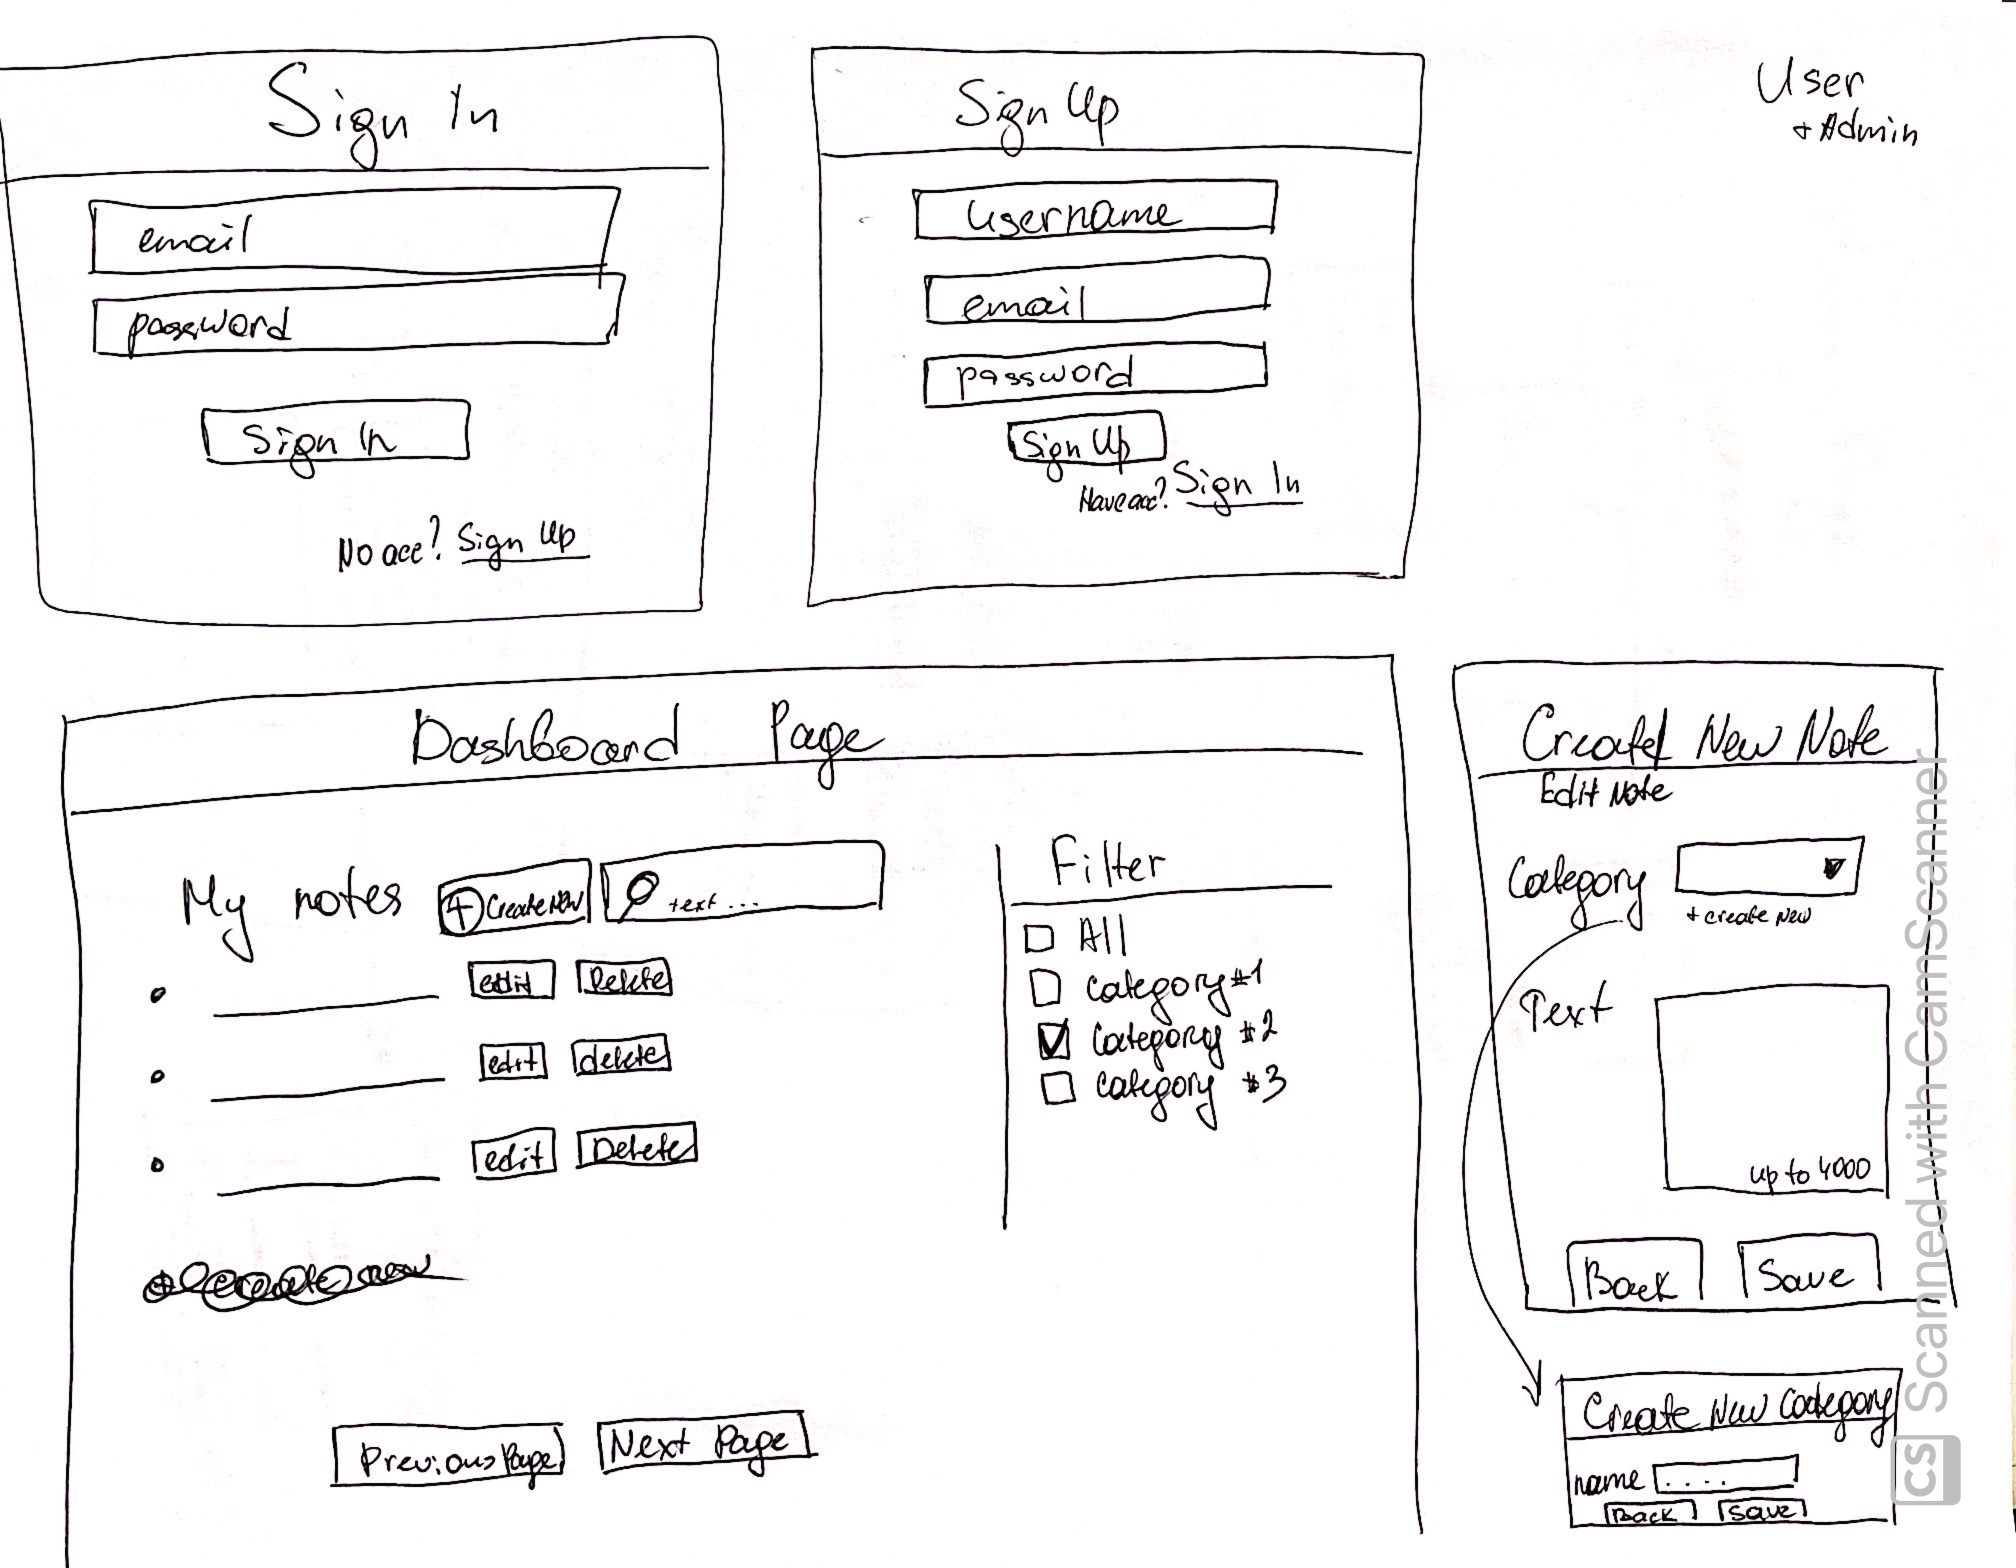 Sign In
email
password
Sign In
No acc? Sign Up
Sign Up
username
email
password
Sign Up
Have acc? Sign In
User
+ Admin
Dashboard Page
My notes
+ Create New
text ...
edit Delete
edit delete
edit Delete
create new
Previous Page
Next Page
Filter
All
category #1
Category #2
category #3
Create New Note
Edit Note
Category
+ create new
Text
up to 4000
Back
Save
Create New Category
name ....
Back
Save
CS Scanned with CamScanner